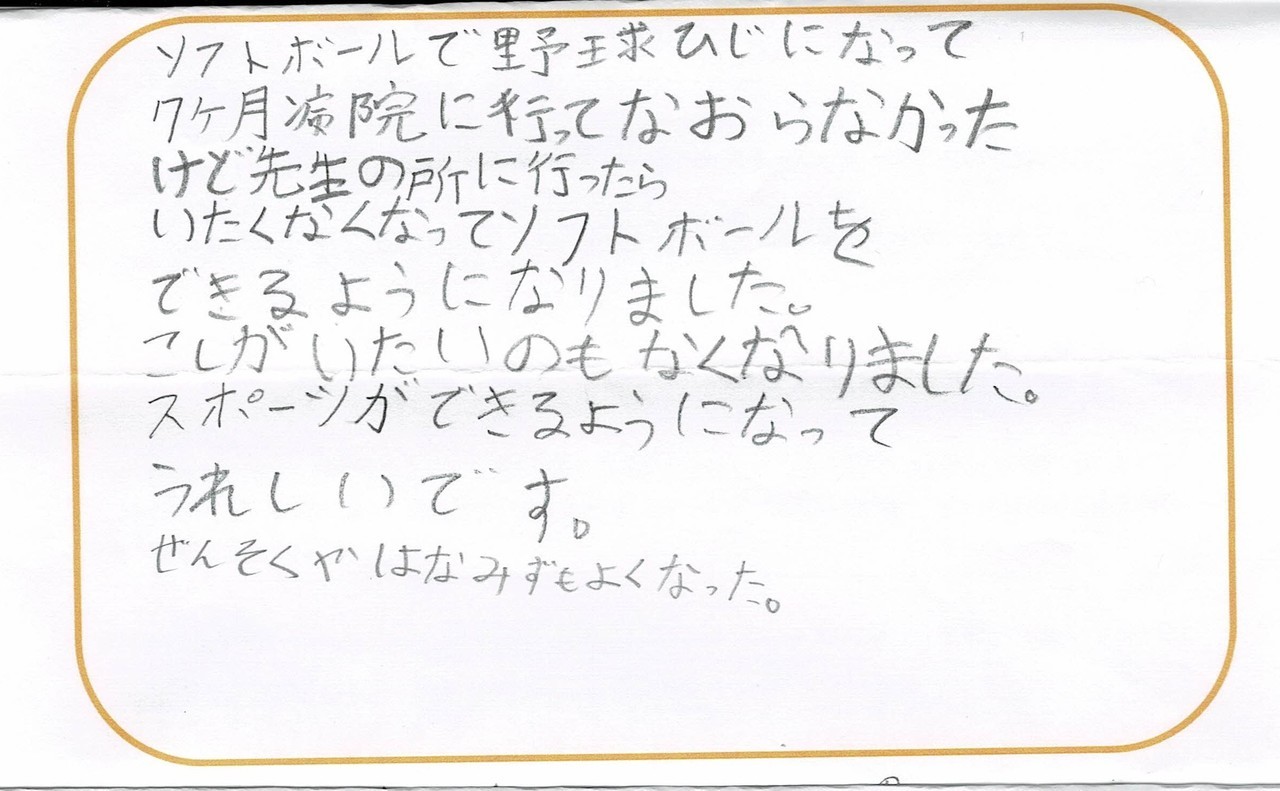 ソフトボールで野球ひじになって
7ヶ月病院に行ってなおらなかった
けど先生の所に行ったら
いたくなくなってソフトボールを
できるようになりました。
こしがいたいのもなくなりました。
スポーツができるようになって
うれしいです。
ぜんそくやはなみずもよくなった。